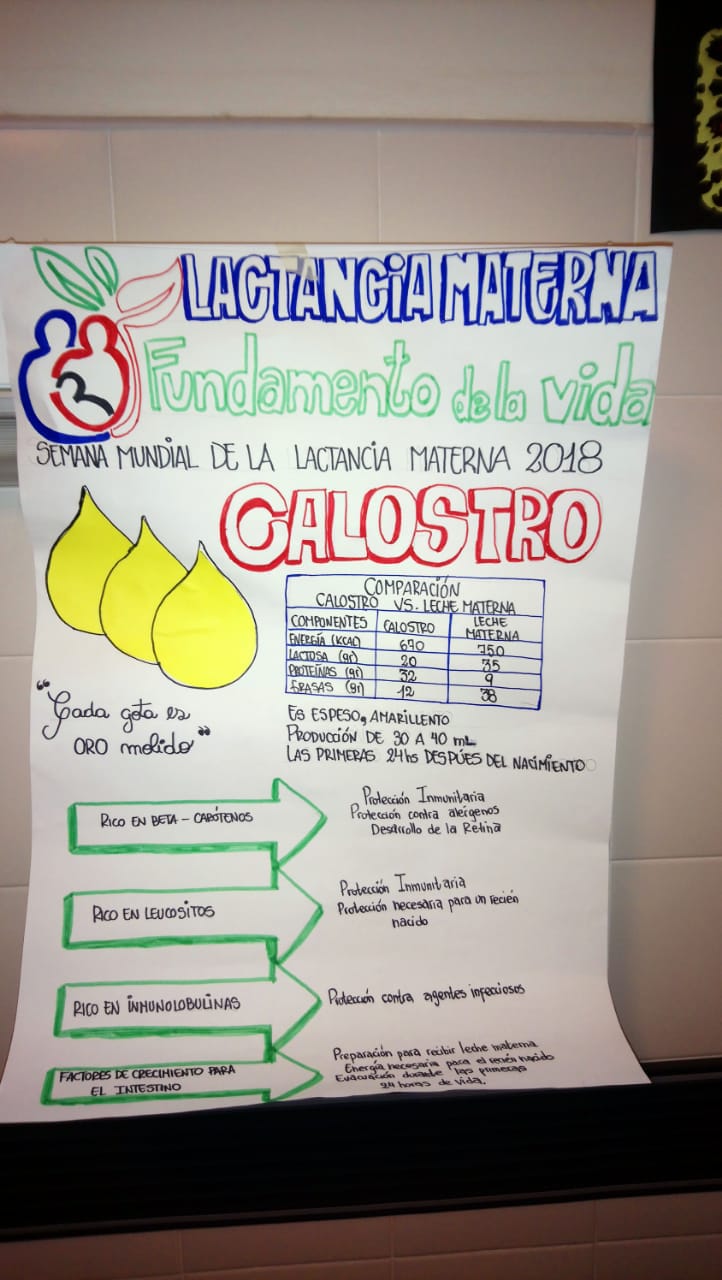 LACTANCIA MATERNA
Fundamento de la vida
SEMANA MUNDIAL DE LA LACTANCIA MATERNA 2018
CALOSTRO
COMPARACIÓN
CALOSTRO VS. LECHE MATERNA
COMPONENTES CALOSTRO LECHE MATERNA
ENERGÍA (KCAL) 670 750
LACTOSA (gr) 20 35
PROTEÍNAS (gr) 32 9
GRASAS (gr) 12 38
"Cada gota es
ORO molido"
ES ESPESO, AMARILLENTO
PRODUCCIÓN DE 30 A 40 mL
LAS PRIMERAS 24hs DESPÚES DEL NACIMIENTO
RICO EN BETA - CARÓTENOS
Protección Inmunitaria
Protección contra alérgenos
Desarrollo de la Retina
RICO EN LEUCOSITOS
Protección Inmunitaria
Protección necesaria para un recién
nacido
RICO EN INMUNOLOBULINAS
Protección contra agentes infecciosos
FACTORES DE CRECIMIENTO PARA
EL INTESTINO
Preparación para recibir leche materna
Energía necesaria para el recién nacido
Evacuación durante las primeras
24 horas de vida.